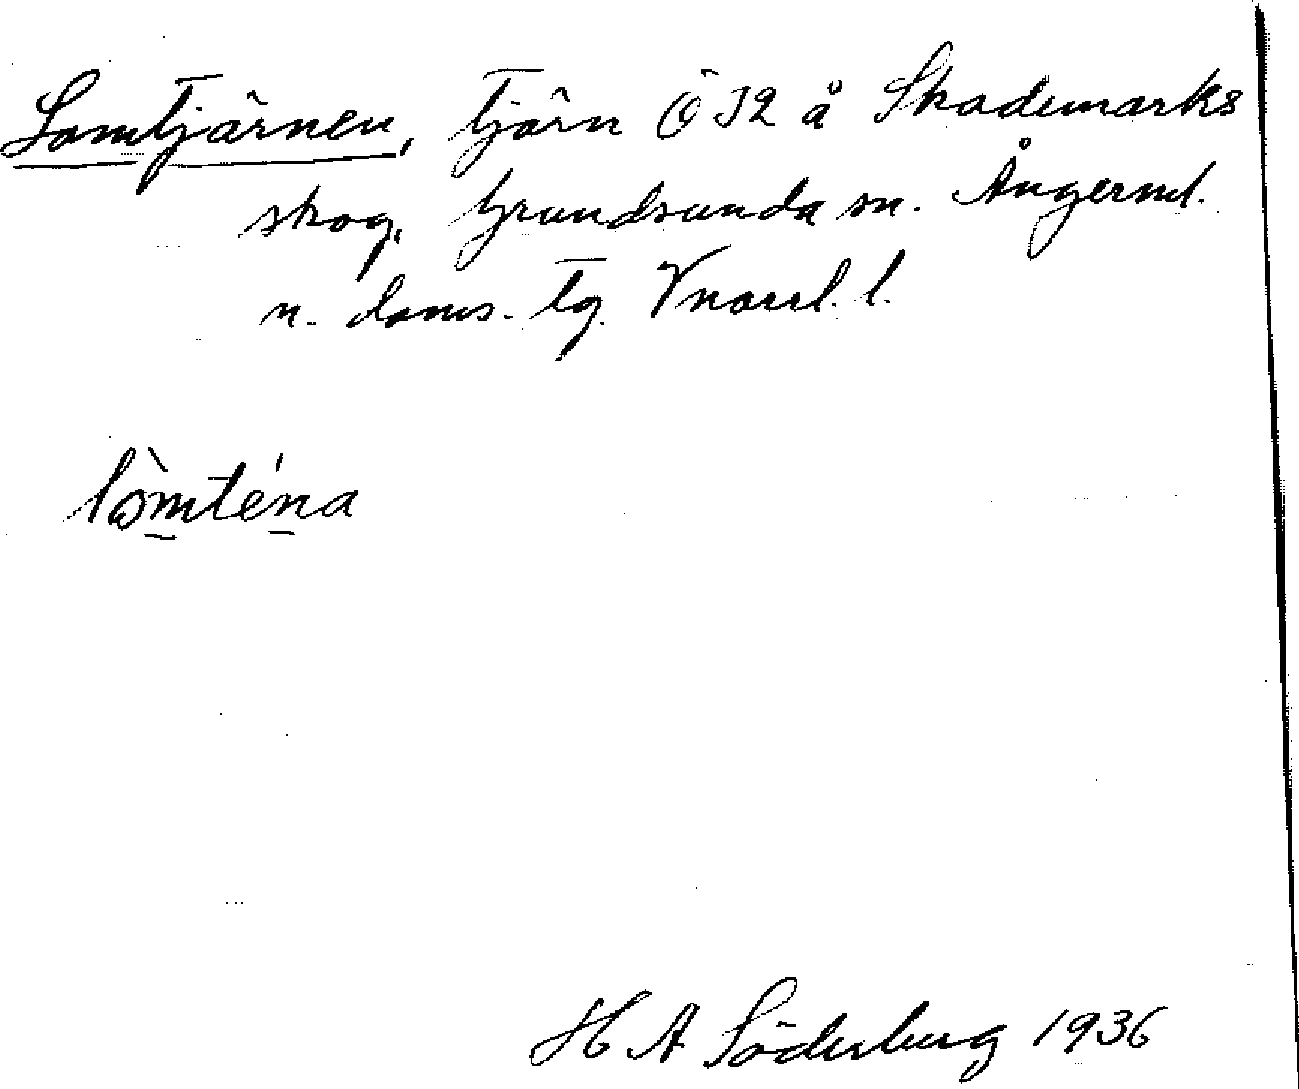 Lomtjärnen, tjärn Ö 32 å Skademarks
skog, Grundsunda sn. Ångerml.
n. doms. tg. Vnorrl. l.
lòmté́na
H A Söderberg 1936